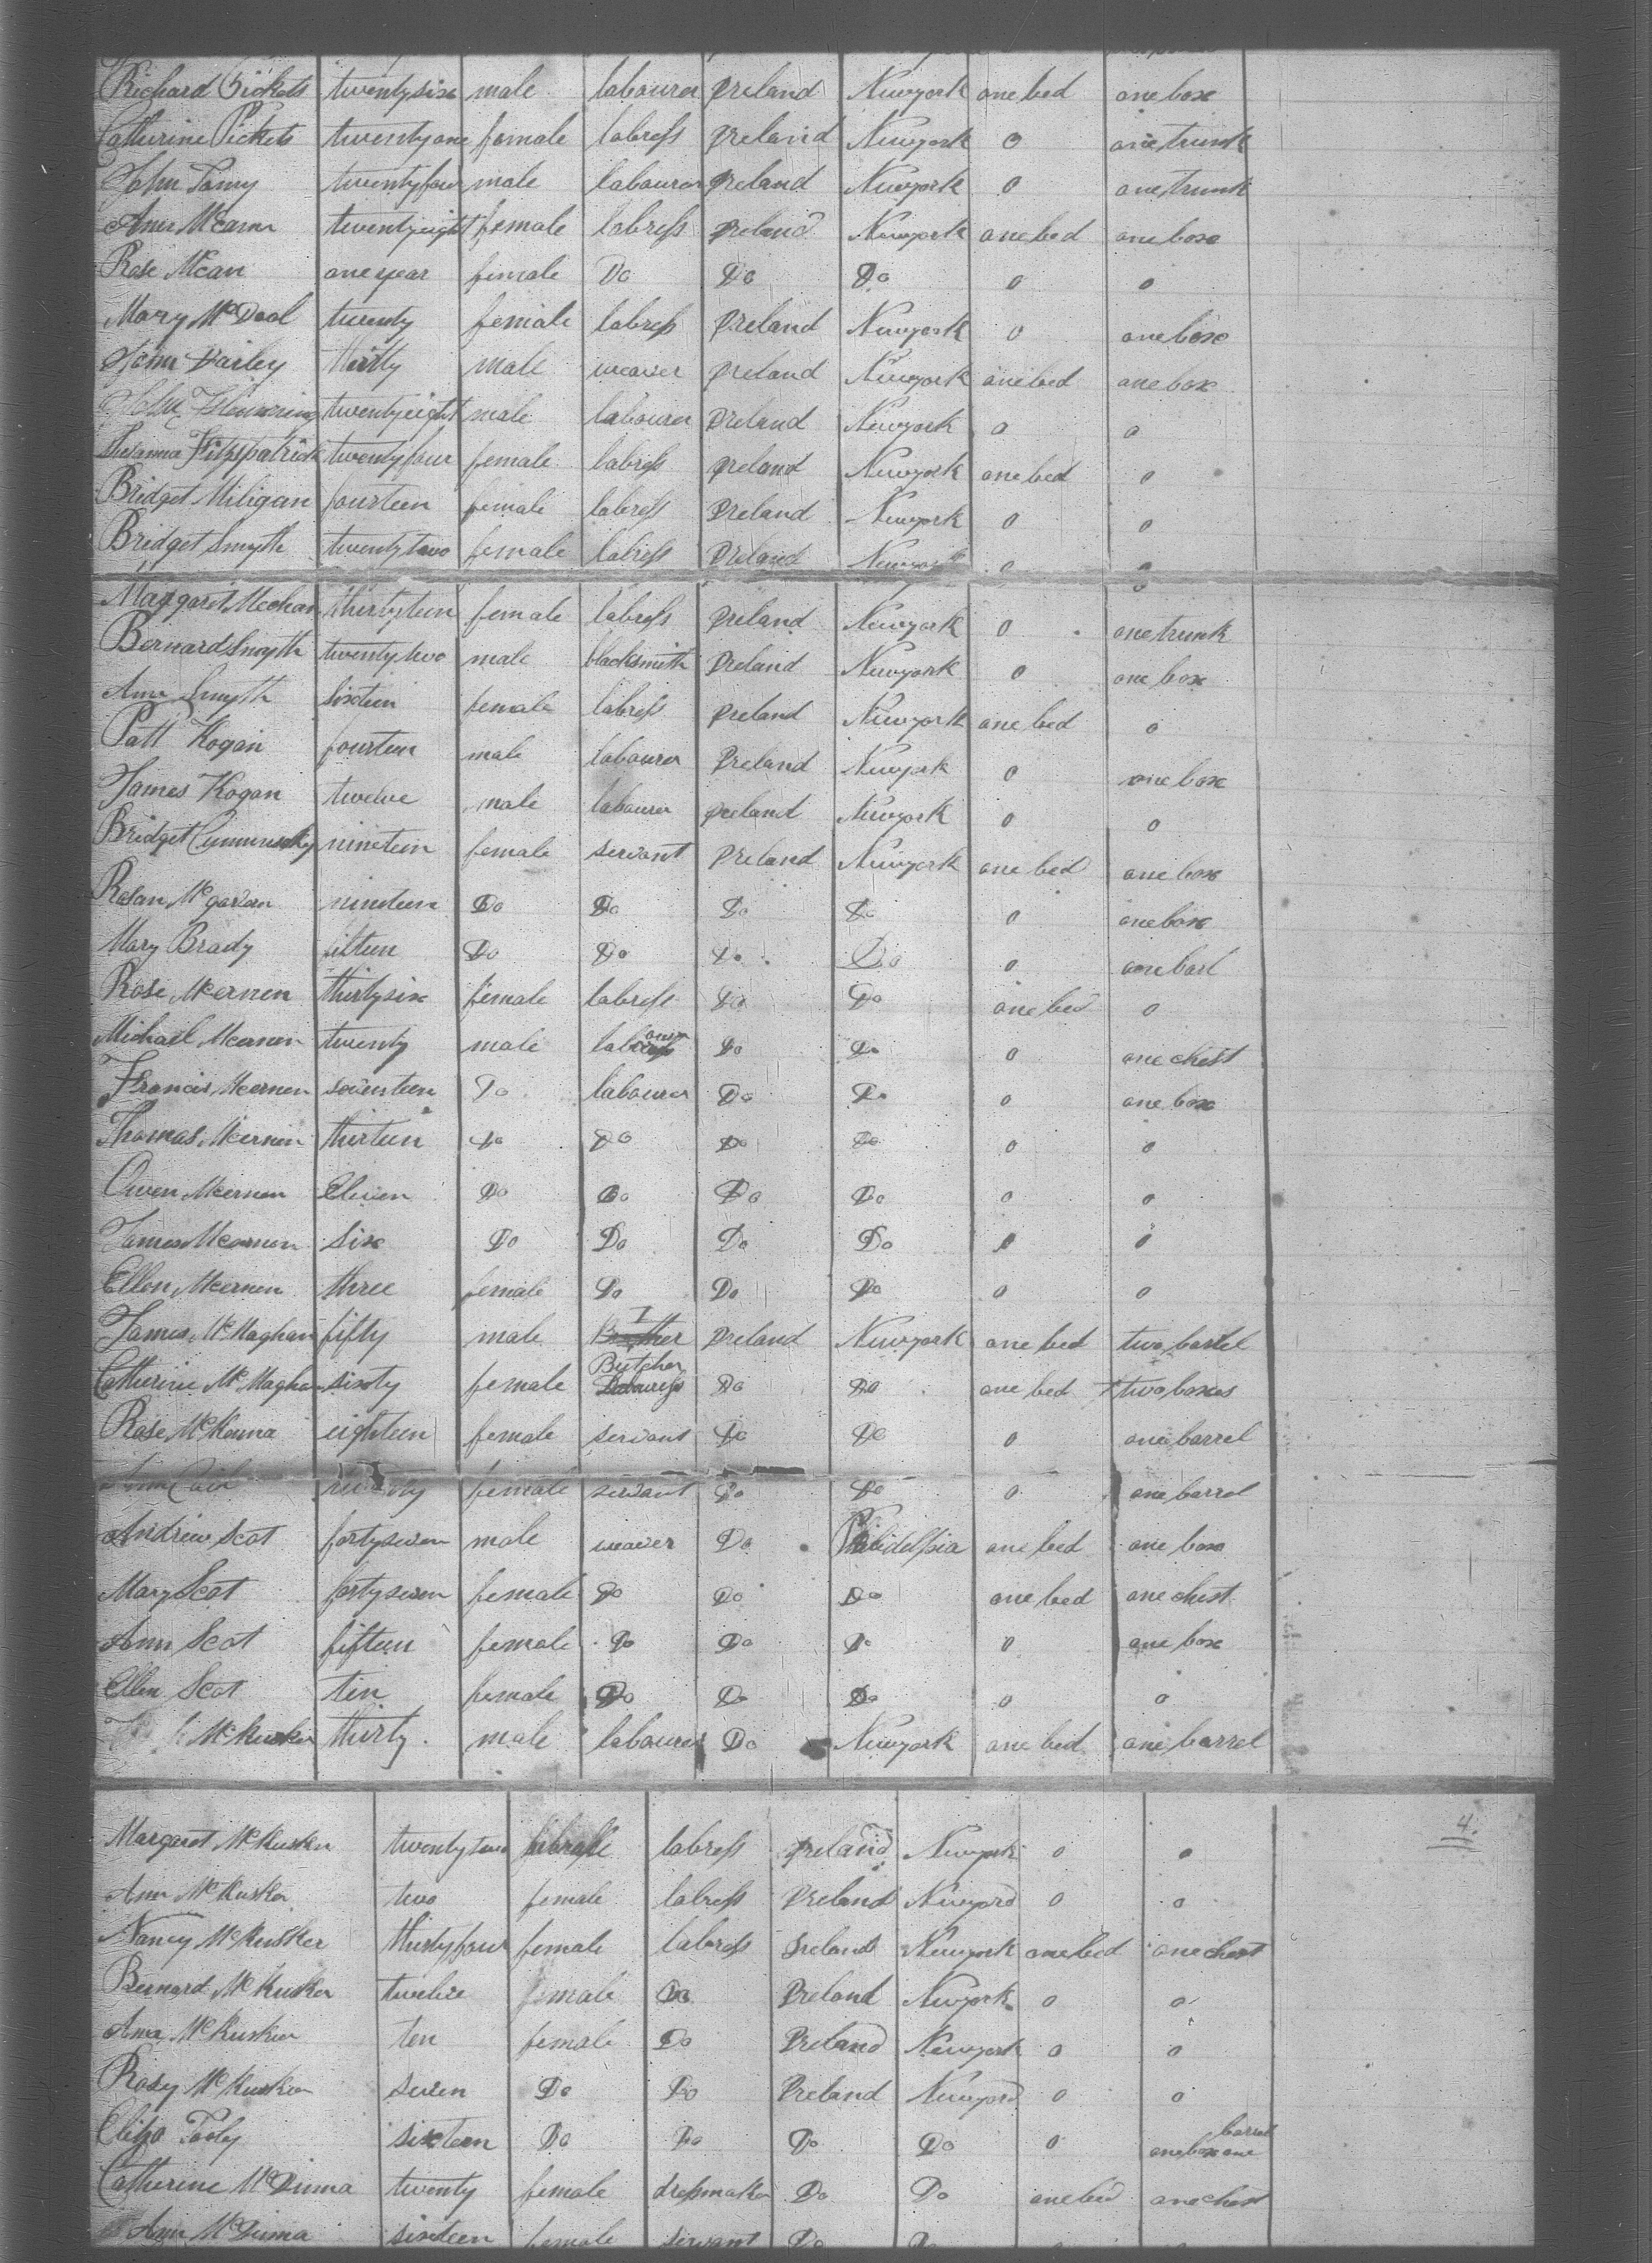 Richard Pickets twentysix male labourer Ireland Newyork one bed one box
Catherine Pickets twentyone female labress Ireland Newyork o one trunk
John twentyfour male labourer Ireland Newyork o one trunk
Ann twentyeight female labress Ireland Newyork one bed one box
Rose Mcan one year female Do Do Do o o
Mary McDool twenty female labress Ireland Newyork o one box
John Dailey thirty male weaver Ireland Newyork one bed one box
John twentyeight male labourer Ireland Newyork o o
Susanna Fitzpatrick twentyfour female labress Ireland Newyork one bed o
Bridget Miligan fourteen female labress Ireland Newyork o o
Bridget Smyth twentytwo female labress Ireland Newyork o o
o
Margaret Meehan female labress Ireland Newyork o one trunk
Bernard Smyth twentytwo male blacksmith Ireland Newyork o one box
Ann Smyth sixteen female labress Ireland Newyork one bed o
Patt Kogan fourteen male labourer Ireland Newyork o one box
James Kogan twelve male labourer Ireland Newyork o o
Bridget nineteen female servant Ireland Newyork one bed one box
Rosan nineteen Do Do Do Do o one box
Mary Brady fifteen Do Do Do Do o one
Rose Mcernen thirtysix female labress Do Do one bed o
Michael Mcernen twenty male labourer Do Do o one chest
Francis Mcernen seventeen Do labourer Do Do o one box
Thomas Mcernen thirteen Do Do Do Do o o
Owen Mcernen Eleven Do Do Do Do o o
James Mcernen six Do Do Do Do o o
Ellen Mcernen three female Do Do Do o o
James McMaghan fifty male Ireland Newyork one bed two
Butcher
Catherine McMaghan sixty female Do Do one bed two boxes
Rose McKenna eighteen female servant Do Do o one barrel
Ann female servant Do Do o one barrel
Andrew Scot fortyseven male weaver Do Philidelfia one bed one box
Mary Scot fortyseven female Do Do Do one bed one chest
Ann Scot fifteen female Do Do Do o one box
Ellen Scot tin female Do Do Do o o
McKusker thirty male labourer Do Newyork one bed one barrel
4.
Margaret McKusker twentytwo labress Ireland Newyork o o
Ann McKusker two female labress Ireland Newyord o o
Nancy McKusker thirtyfour female labress Ireland Newyork one bed one chest
Bernard McKusker twelve female Do Ireland Newyork o o
Ann McKusker ten female Do Ireland Newyork o o
Rosy McKusker seven Do Do Ireland Newyord o o
barrel
Eliza sixteen Do Do Do Do o one box one
Catherine McDinna twenty female dressmaker Do Do one bed one chest
Ann McDinna sixteen female servant Do Do